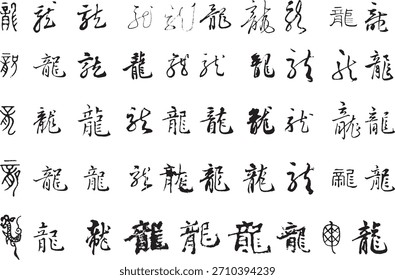 龍龍龍龍龍龍龍龍龍龍
龍龍龍龍龍龍龍龍龍龍
龍龍龍龍龍龍龍龍龍龍
龍龍龍龍龍龍龍龍龍龍
龍龍龍龍龍龍龍龍龍
shutterstock.com · 2710394239